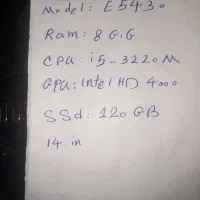 Model: E5430
Ram: 8 GiG
CPU: i5-3220M
GPU: Intel HD 4000
SSd: 120 GB
14 in